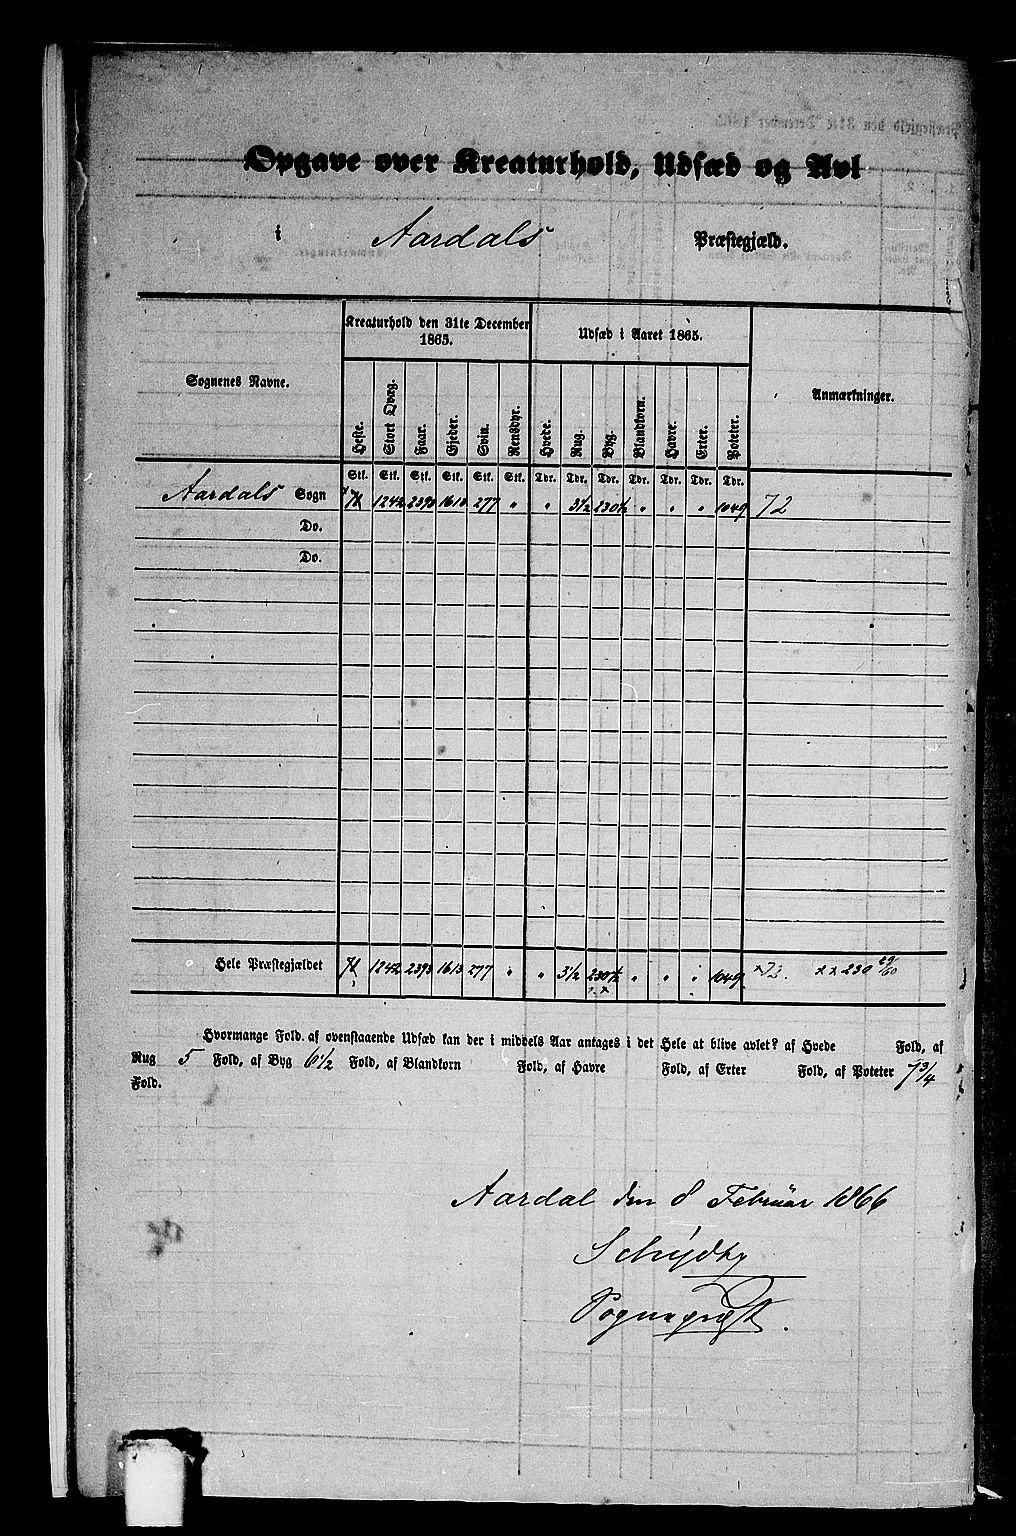 Opgave over Kreaturhold, Udsæd og Avl
i Aardals Præstegjæld.
Sognenes Navne. Kreaturhold den 31te December 1865. Udsæd i Aaret 1865. Anmærkninger.
Heste. Stort Qvæg. Faar. Gjeder. Svin. Rensdyr. Hvede. Rug. Byg. Blandkorn. Havre. Erter. Poteter.
Stk. Stk. Stk. Stk. Stk. Stk. Tdr. Tdr. Tdr. Tdr. Tdr. Tdr. Tdr.
Aardals Sogn 1242 2393 1613 277 " " 3½ 230½ " " " 1049 72
Do.
Do.
Hele Præstegjældet 1242 2393 1613 277 " " 3½ 230½ " " " 1049 × 72. ×× 230 29/60
Hvormange Fold af ovenstaaende Udsæd kan der i middels Aar antages i det Hele at blive avlet? af Hvede Fold, af
Rug 5 Fold, af Byg 6½ Fold, af Blandkorn Fold, af Havre Fold, af Erter Fold, af Poteter 7¾
Fold.
Aardal den 8 Februar 1866
Sognepræst.